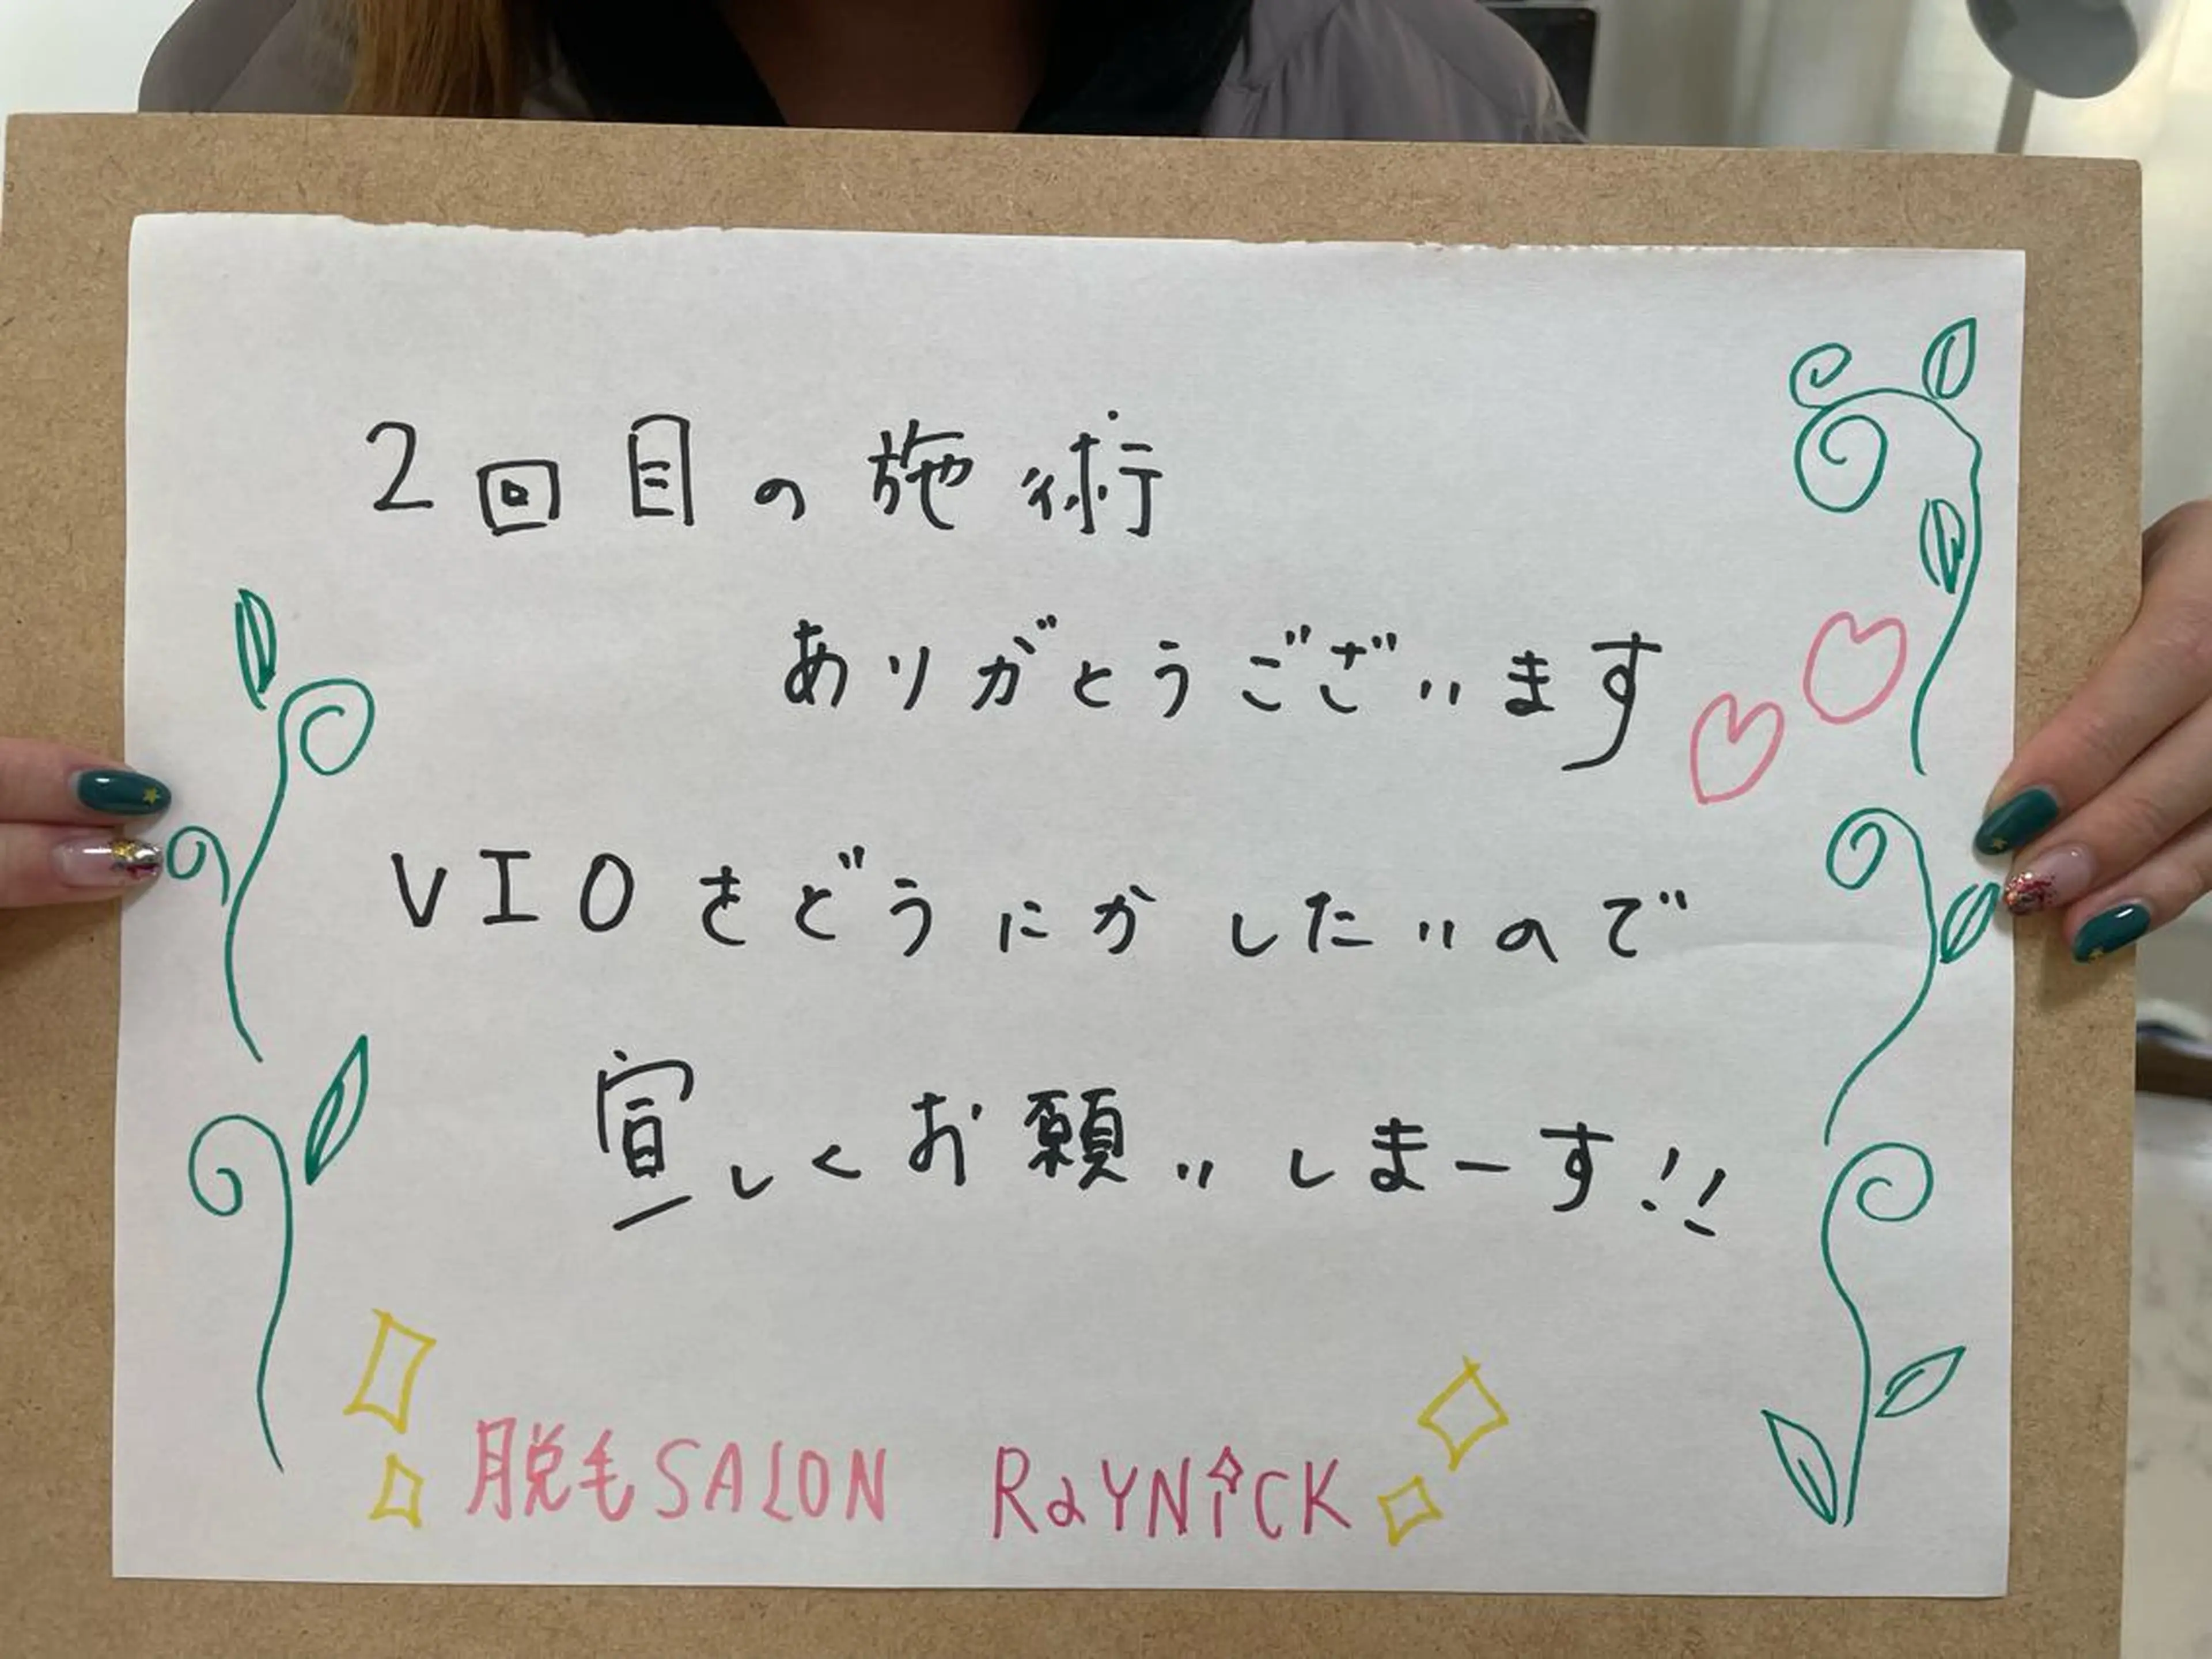 2回目の施術
ありがとうございます
VIOをどうにかしたいので
宣しくお願いしまーす!!
脱毛SALON RaYNiCK